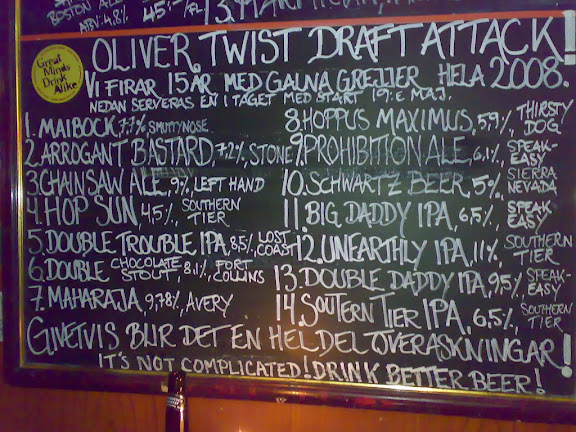 BOSTON ALE
ABV: 4,8% 45:-
Great
Minds
Drink
Alike
OLIVER TWIST DRAFT ATTACK!
VI FIRAR 15 ÅR MED GALNA GREJJER HELA 2008.
NEDAN SERVERAS EN I TAGET MED START 19:E MAJ.
1. MAIBOCK, 7,7% SMUTTYNOSE
2. ARROGANT BASTARD, 7,2%, STONE
3. CHAINSAW ALE, 9%, LEFT HAND
4. HOP SUN, 4,5%, SOUTHERN TIER
5. DOUBLE TROUBLE IPA, 8,5%, LOST COAST
6. DOUBLE CHOCOLATE STOUT, 8,1%, FORT COLLINS
7. MAHARAJA, 9,78%, AVERY
8. HOPPUS MAXIMUS, 5,9%, THIRSTY DOG
9. PROHIBITION ALE, 6,1%, SPEAK-EASY
10. SCHWARTZ BEER, 5%, SIERRA NEVADA
11. BIG DADDY IPA, 6,5%, SPEAK EASY
12. UNEARTHLY IPA, 11%, SOUTHERN TIER
13. DOUBLE DADDY IPA, 9,5%, SPEAK-EASY
14. SOUTERN TIER IPA, 6,5%, SOUTHERN TIER
GIVETVIS BLIR DET EN HEL DEL ÖVERASKNINGAR!
IT'S NOT COMPLICATED! DRINK BETTER BEER!